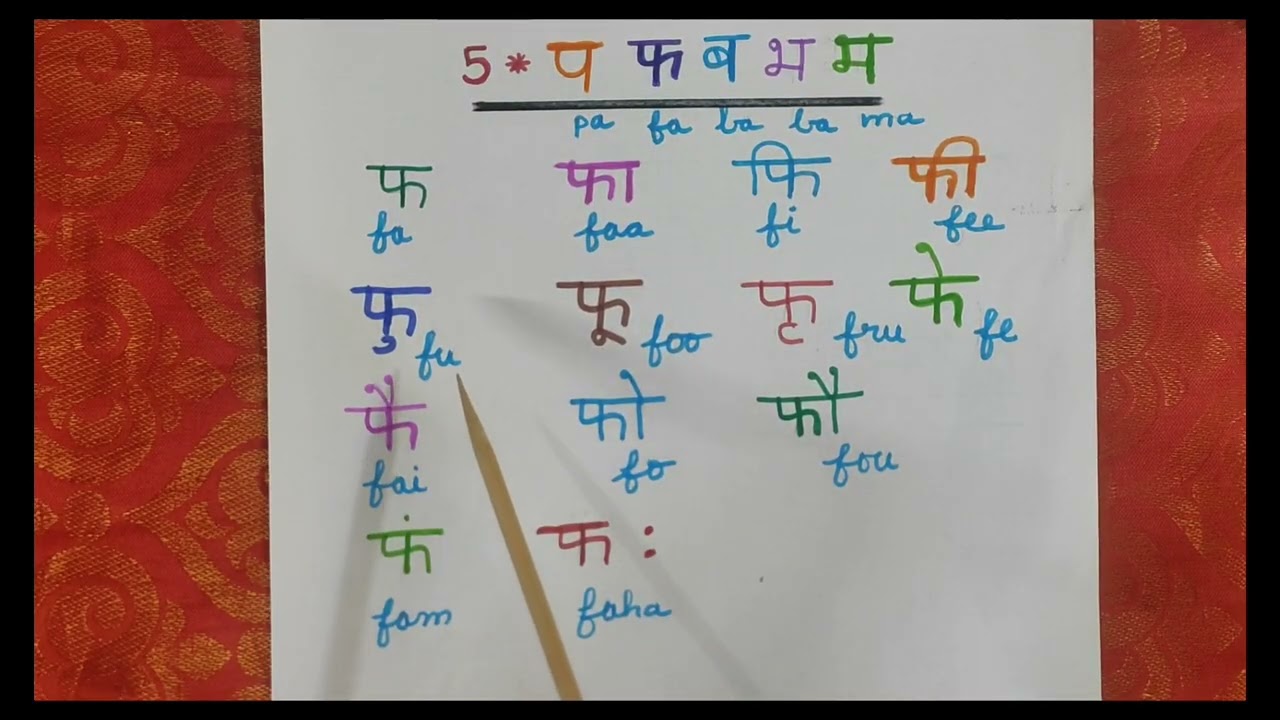 5* प फ ब भ म
pa fa ba ba ma
फ फा फि फी
fa faa fi fee
फु फू फृ फे
fu foo fru fe
फै फो फौ
fai fo fou
फं फ :
fam faha